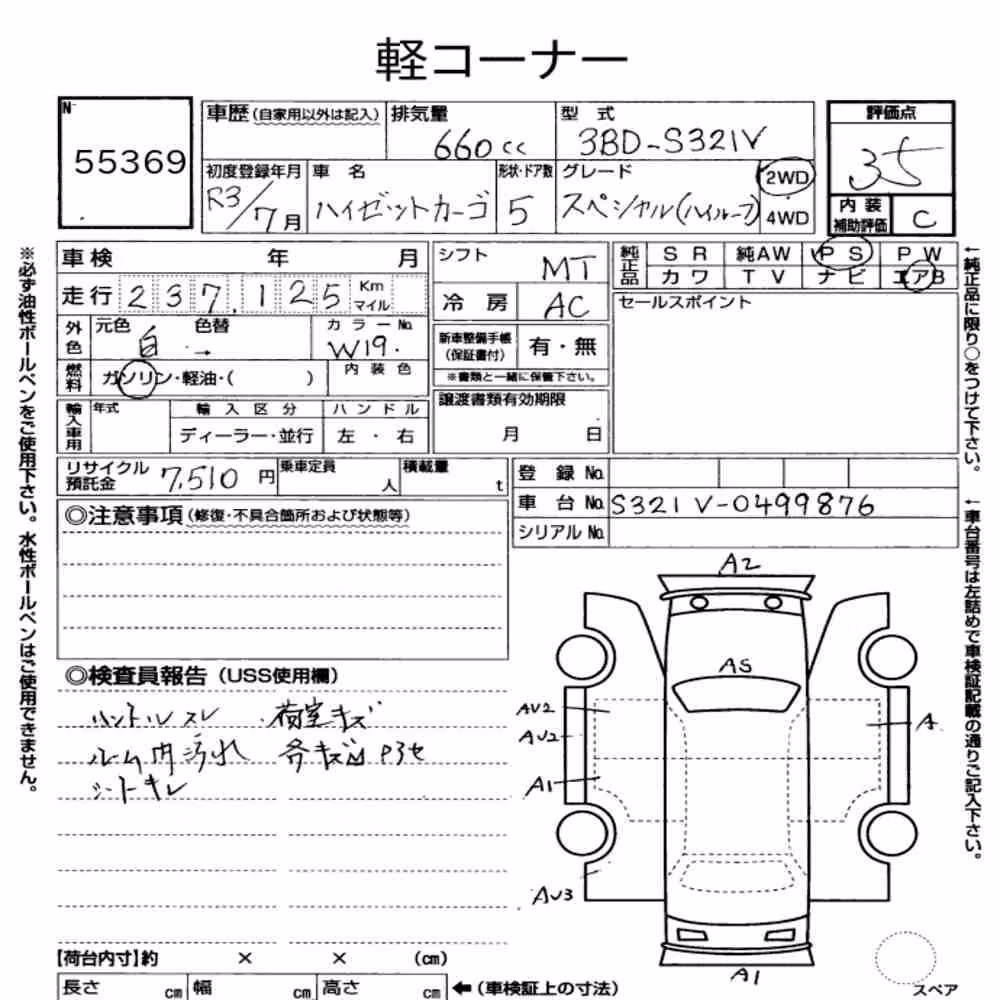 軽コーナー
№ 55369
車歴(自家用以外は記入) 排気量 660cc 型式 3BD-S321V
評価点 35
初度登録年月 R3/7月 車名 ハイゼットカーゴ 形状・ドア数 5 グレード スペシャル(ハイルーフ) 2WD 4WD
内装補助評価 C
車検 年 月
走行 237,125 Km マイル
外色 元色 白 色替 → カラーNo. W19.
燃料 ガソリン・軽油・( ) 内装色
輸入車用 年式 輸入区分 ハンドル
ディーラー・並行 左・右
リサイクル預託金 7,510円 乗車定員 人 積載量 t
シフト MT
冷房 AC
新車整備手帳(保証書付) 有・無
※書類と一緒に保管下さい。
譲渡書類有効期限
月 日
純正品 SR 純AW PS PW
カワ TV ナビ エアB
セールスポイント
登録No.
車台No. S321V-0499876
シリアルNo.
◎注意事項(修復・不具合箇所および状態等)
◎検査員報告(USS使用欄)
ハンドルスレ 荷室キズ
ルーム内汚れ 各キズ凹P3セ
シートキレ
A2
AS
AV2
AV2
A
A1
AV3
A1
スペア
【荷台内寸】約 × × (cm)
長さ cm 幅 cm 高さ cm ←(車検証上の寸法)
※必ず油性ボールペンをご使用下さい。水性ボールペンはご使用できません。
←純正品に限り○をつけて下さい。
←車台番号は左詰めで車検証記載の通りご記入下さい。